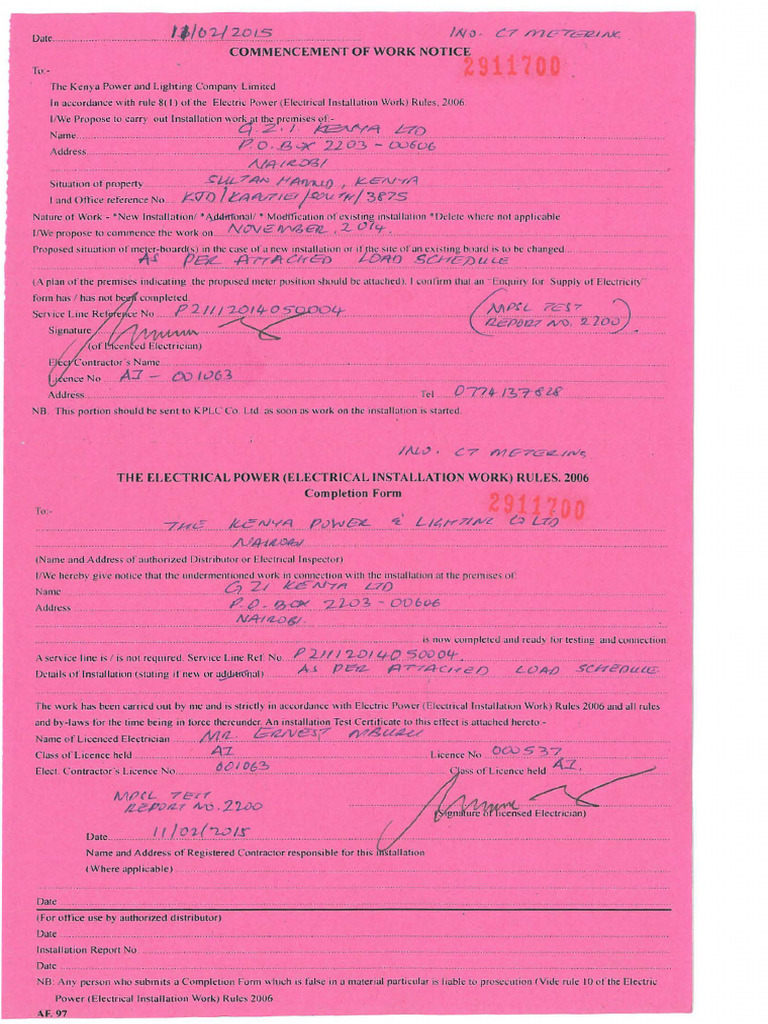 Date 11/02/2015 IND. CT METERING
COMMENCEMENT OF WORK NOTICE
2911700
To:-
The Kenya Power and Lighting Company Limited
In accordance with rule 8(1) of the Electric Power (Electrical Installation Work) Rules, 2006.
I/We Propose to carry out Installation work at the premises of:-
Name G.Z.I. KENYA LTD
Address P.O. BOX 2203 - 00606
NAIROBI
Situation of property SULTAN HAMUD, KENYA
Land Office reference No KJD/KAPUTIEI/SOUTH/3875
Nature of Work - *New Installation/ *Additional/ * Modification of existing installation *Delete where not applicable
I/We propose to commence the work on NOVEMBER, 2014.
Proposed situation of meter-board(s) in the case of a new installation or if the site of an existing board is to be changed
AS PER ATTACHED LOAD SCHEDULE
(A plan of the premises indicating the proposed meter position should be attached). I confirm that an "Enquiry for Supply of Electricity"
form has / has not been completed
Service Line Reference No P21112014050004 (MPSL TEST
Signature REPORT NO. 2200)
(of Licenced Electrician)
Elect Contractor's Name
Licence No AI - 001063
Address Tel 0774137828
NB. This portion should be sent to KPLC Co. Ltd. as soon as work on the installation is started.
IND. CT METERING
THE ELECTRICAL POWER (ELECTRICAL INSTALLATION WORK) RULES. 2006
Completion Form
2911700
To:-
THE KENYA POWER & LIGHTING CO LTD
NAIROBI
(Name and Address of authorized Distributor or Electrical Inspector)
I/We hereby give notice that the undermentioned work in connection with the installation at the premises of:
Name G ZI KENYA LTD
Address P.O. BOX 2203 - 00606
NAIROBI.
is now completed and ready for testing and connection.
A service line is / is not required. Service Line Ref. No. P21112014050004.
Details of Installation (stating if new or additional) AS PER ATTACHED LOAD SCHEDULE
The work has been carried out by me and is strictly in accordance with Electric Power (Electrical Installation Work) Rules 2006 and all rules
and by-laws for the time being in force thereunder. An installation Test Certificate to this effect is attached hereto:-
Name of Licenced Electrician MR. ERNEST MBURU
Class of Licence held AI Licence No 000537
Elect. Contractor's Licence No. 001063 Class of Licence held AI.
MPSL TEST
REPORT NO. 2200
(Signature of licensed Electrician)
Date 11/02/2015
Name and Address of Registered Contractor responsible for this installation
(Where applicable)
Date
(For office use by authorized distributor)
Date
Installation Report No
Date
NB: Any person who submits a Completion Form which is false in a material particular is liable to prosecution (Vide rule 10 of the Electric
Power (Electrical Installation Work) Rules 2006
AF. 97